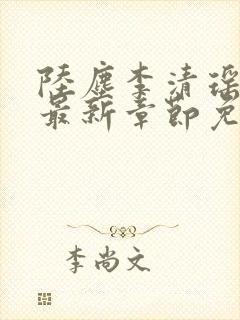 陆尘李清瑶
最新章节免
李尚文